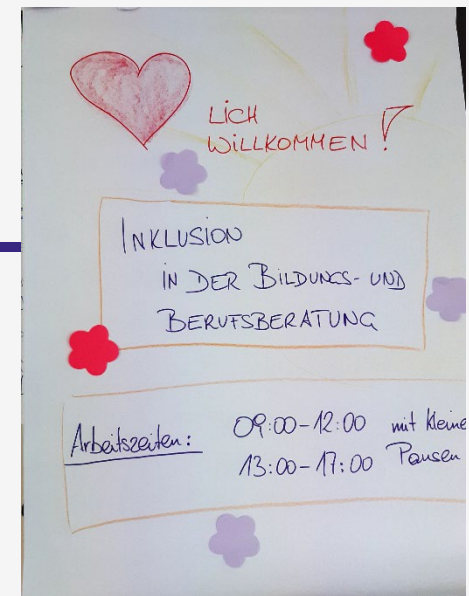 LICH
WILLKOMMEN!
INKLUSION
IN DER BILDUNGS- UND
BERUFSBERATUNG
Arbeitszeiten: 09:00-12:00 mit kleine
13:00-17:00 Pausen